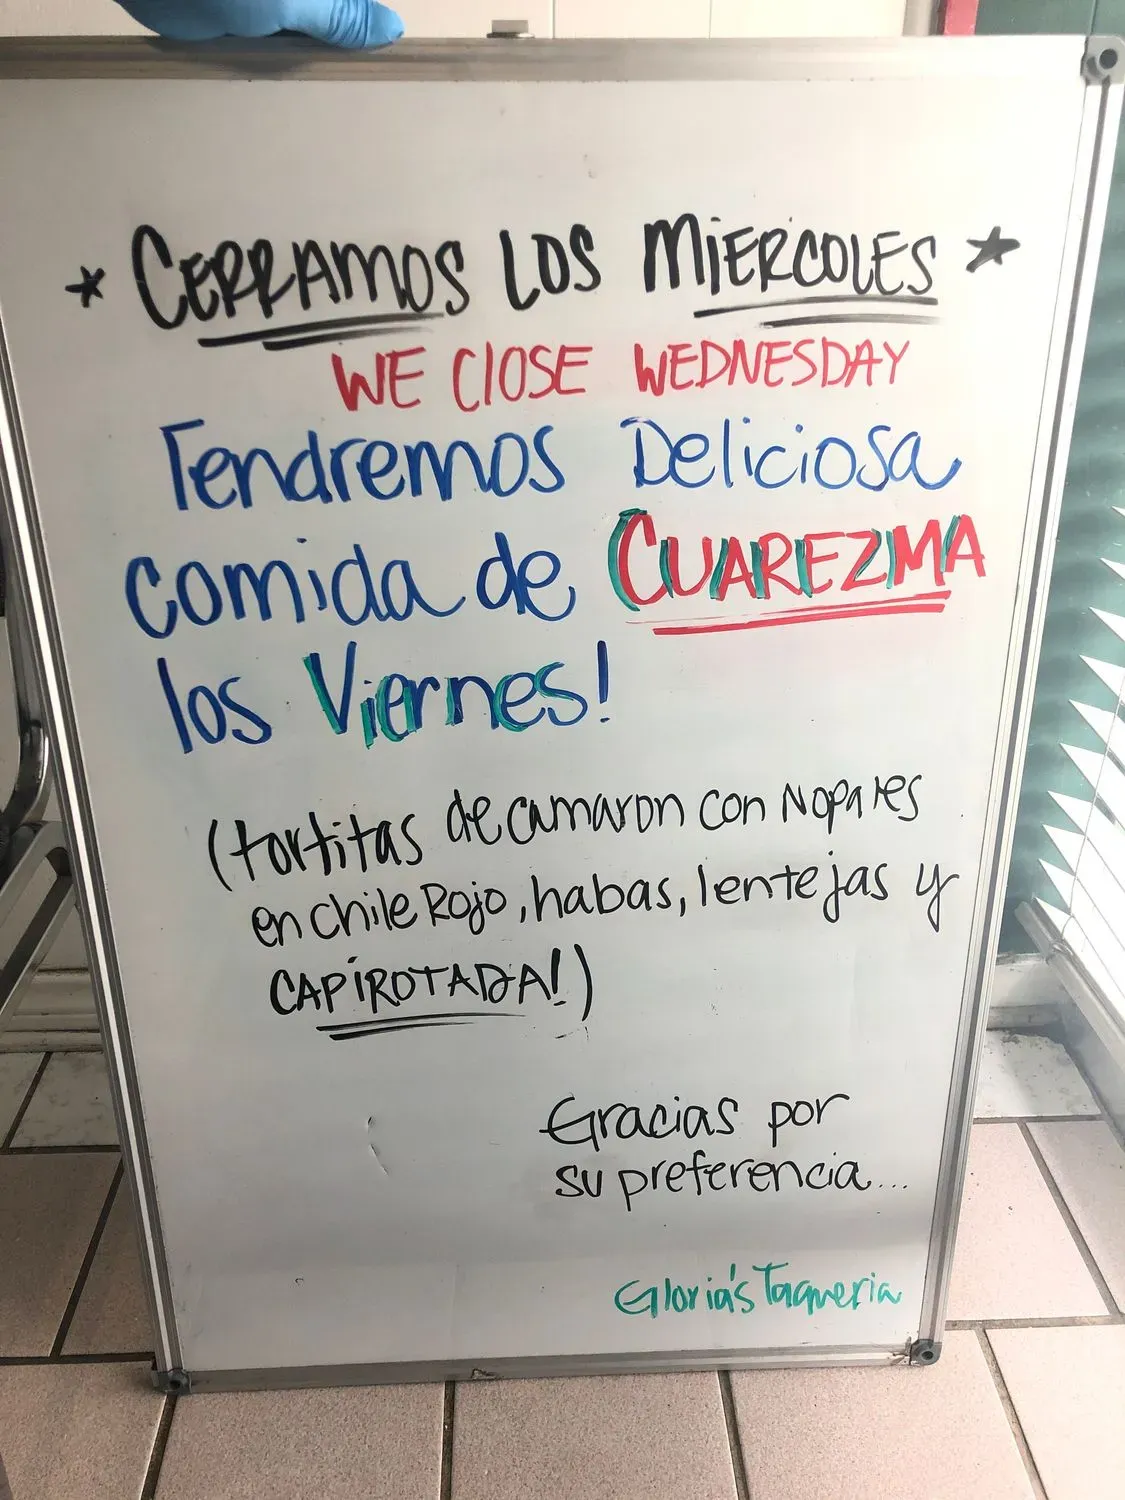 * CERRAMOS LOS MIERCOLES *
WE ClOSE WEDNESDAY
Tendremos Deliciosa
comida de CUAREZMA
los Viernes!
(tortitas de camaron con Nopales
en chile Rojo, habas, lentejas y
CAPIROTADA!)
Gracias por
su preferencia...
Gloria's Taqueria